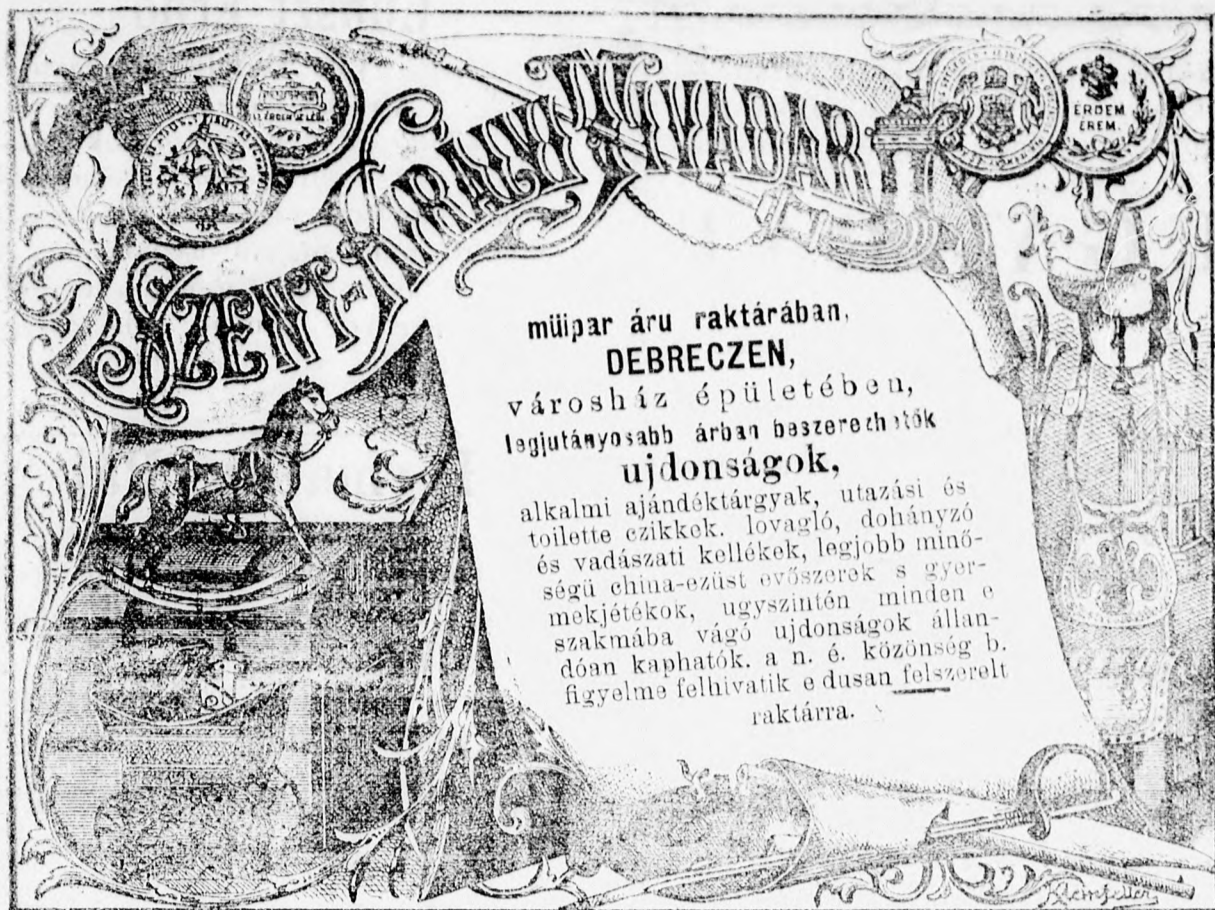 SZENT-KIRÁLYI TIVADAR
ÉRDEM
ÉREM.
müipar áru raktárában,
DEBRECZEN,
városház épületében,
legjutányosabb árban beszerezhetők
ujdonságok,
alkalmi ajándéktárgyak, utazási és
toilette czikkek. lovagló, dohányzó
és vadászati kellékek, legjobb minő-
ségü china-ezüst evőszerek s gyer-
mekjétékok, ugyszintén minden e
szakmába vágó ujdonságok állan-
dóan kaphatók. a n. é. közönség b.
figyelme felhivatik e dusan felszerelt
raktárra.